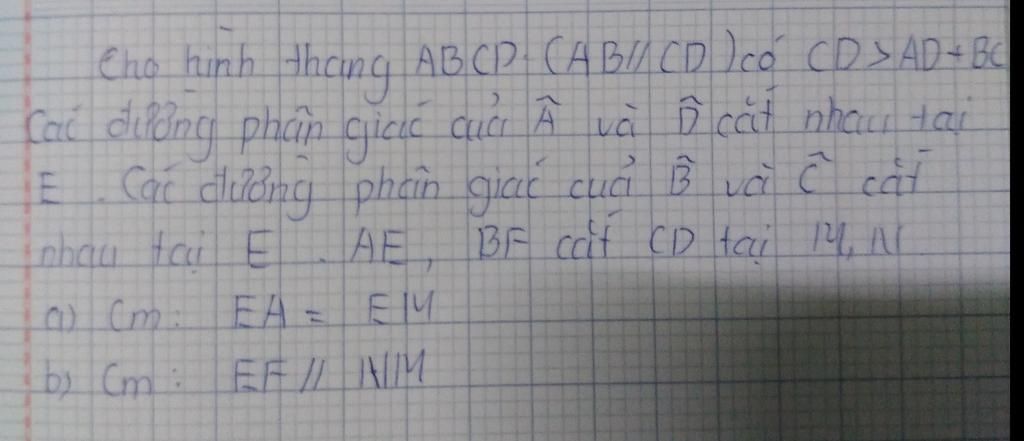 Cho hình thang ABCD. (AB//CD) có CD > AD + BC
Các đường phân giác của Â và D̂ cắt nhau tại
E. Các đường phân giác của B̂ và Ĉ cắt
nhau tại E. AE, BF cắt CD tại M, N
a) Cm: EA = EM
b) Cm: EF // NM